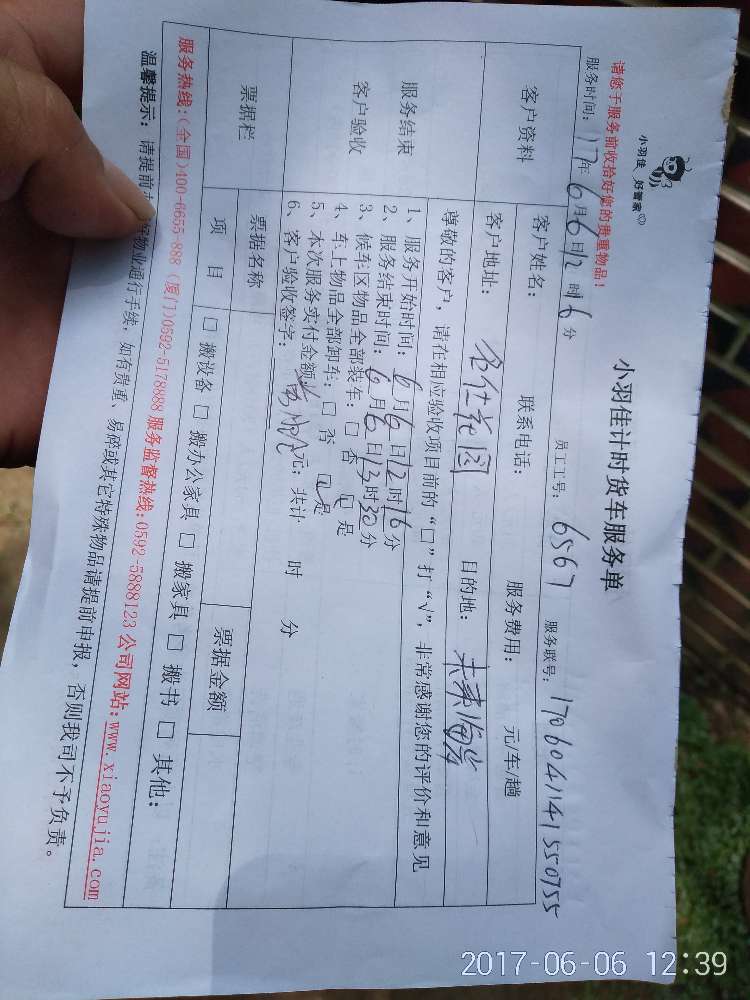 小羽佳 好管家
小羽佳计时货车服务单
请您于服务前收拾好您的贵重物品！
服务时间：17年6月6日12时16分 员工工号：6567 服务联号：1706041141550755
客户资料
客户姓名： 联系电话： 服务费用： 元/车/趟
客户地址：名仕花园 目的地：未来海岸
服务结束
客户验收
尊敬的客户，请在相应验收项目前的“□”打“√”，非常感谢您的评价和意见
1、服务开始时间：6月6日12时16分
2、服务结束时间：6月6日13时30分
3、候车区物品全部装车：□ 否 □ 是
4、车上物品全部卸车：□ 否 □ 是
5、本次服务实付金额： 元；共计 时 分
6、客户验收签字：
票据栏
票据名称 票据金额
项 目 □ 搬设备 □ 搬办公家具 □ 搬家具 □ 搬书 □ 其他：
服务热线：(全国)400-6655-888 (厦门)0592-5178888 服务监督热线：0592-5888123 公司网站：www.xiaoyujia.com
温馨提示：请提前 好物业通行手续，如有贵重、易碎或其它特殊物品请提前申报，否则我司不予负责。
2017-06-06 12:39